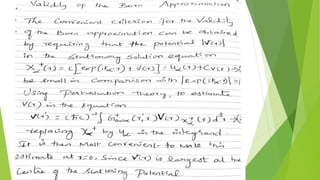 Validity of the Born Approximation
The Convenient criterion for the Validity
of the Born approximation can be obtained
by requiring that the potential |V(r)|
in the Stationary Solution equation
χ⁺(r) = c[exp(ik·r) + v(r)] = u(r) + Cv(r) →
be small in Comparison with |exp(ik·r)| =
Using Perturbation Theory, to estimate
V(r) in the Equation
V(r) = (ħc)⁻¹ ∫ G⁺(r, r') V(r') χ⁺(r) d³r →
replacing χ⁺ by u in the integrand.
It is then Most Convenient to Make this
estimate at r=0. Since V(r) is largest at the
Centre of the Scattering Potential.